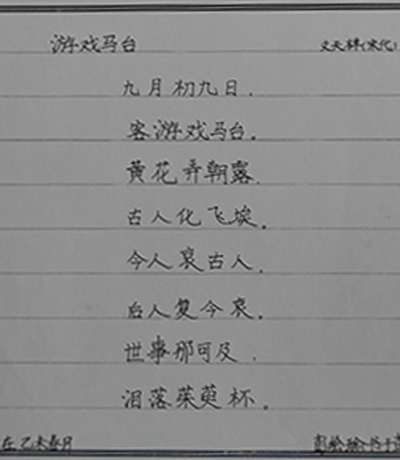 游戏马台 文天祥(宋代)
九月初九日,
客游戏马台。
黄花弄朝露,
古人化飞埃。
今人哀古人,
后人复今哀。
世事那可及,
泪落茱萸杯。
在乙未春月 书于